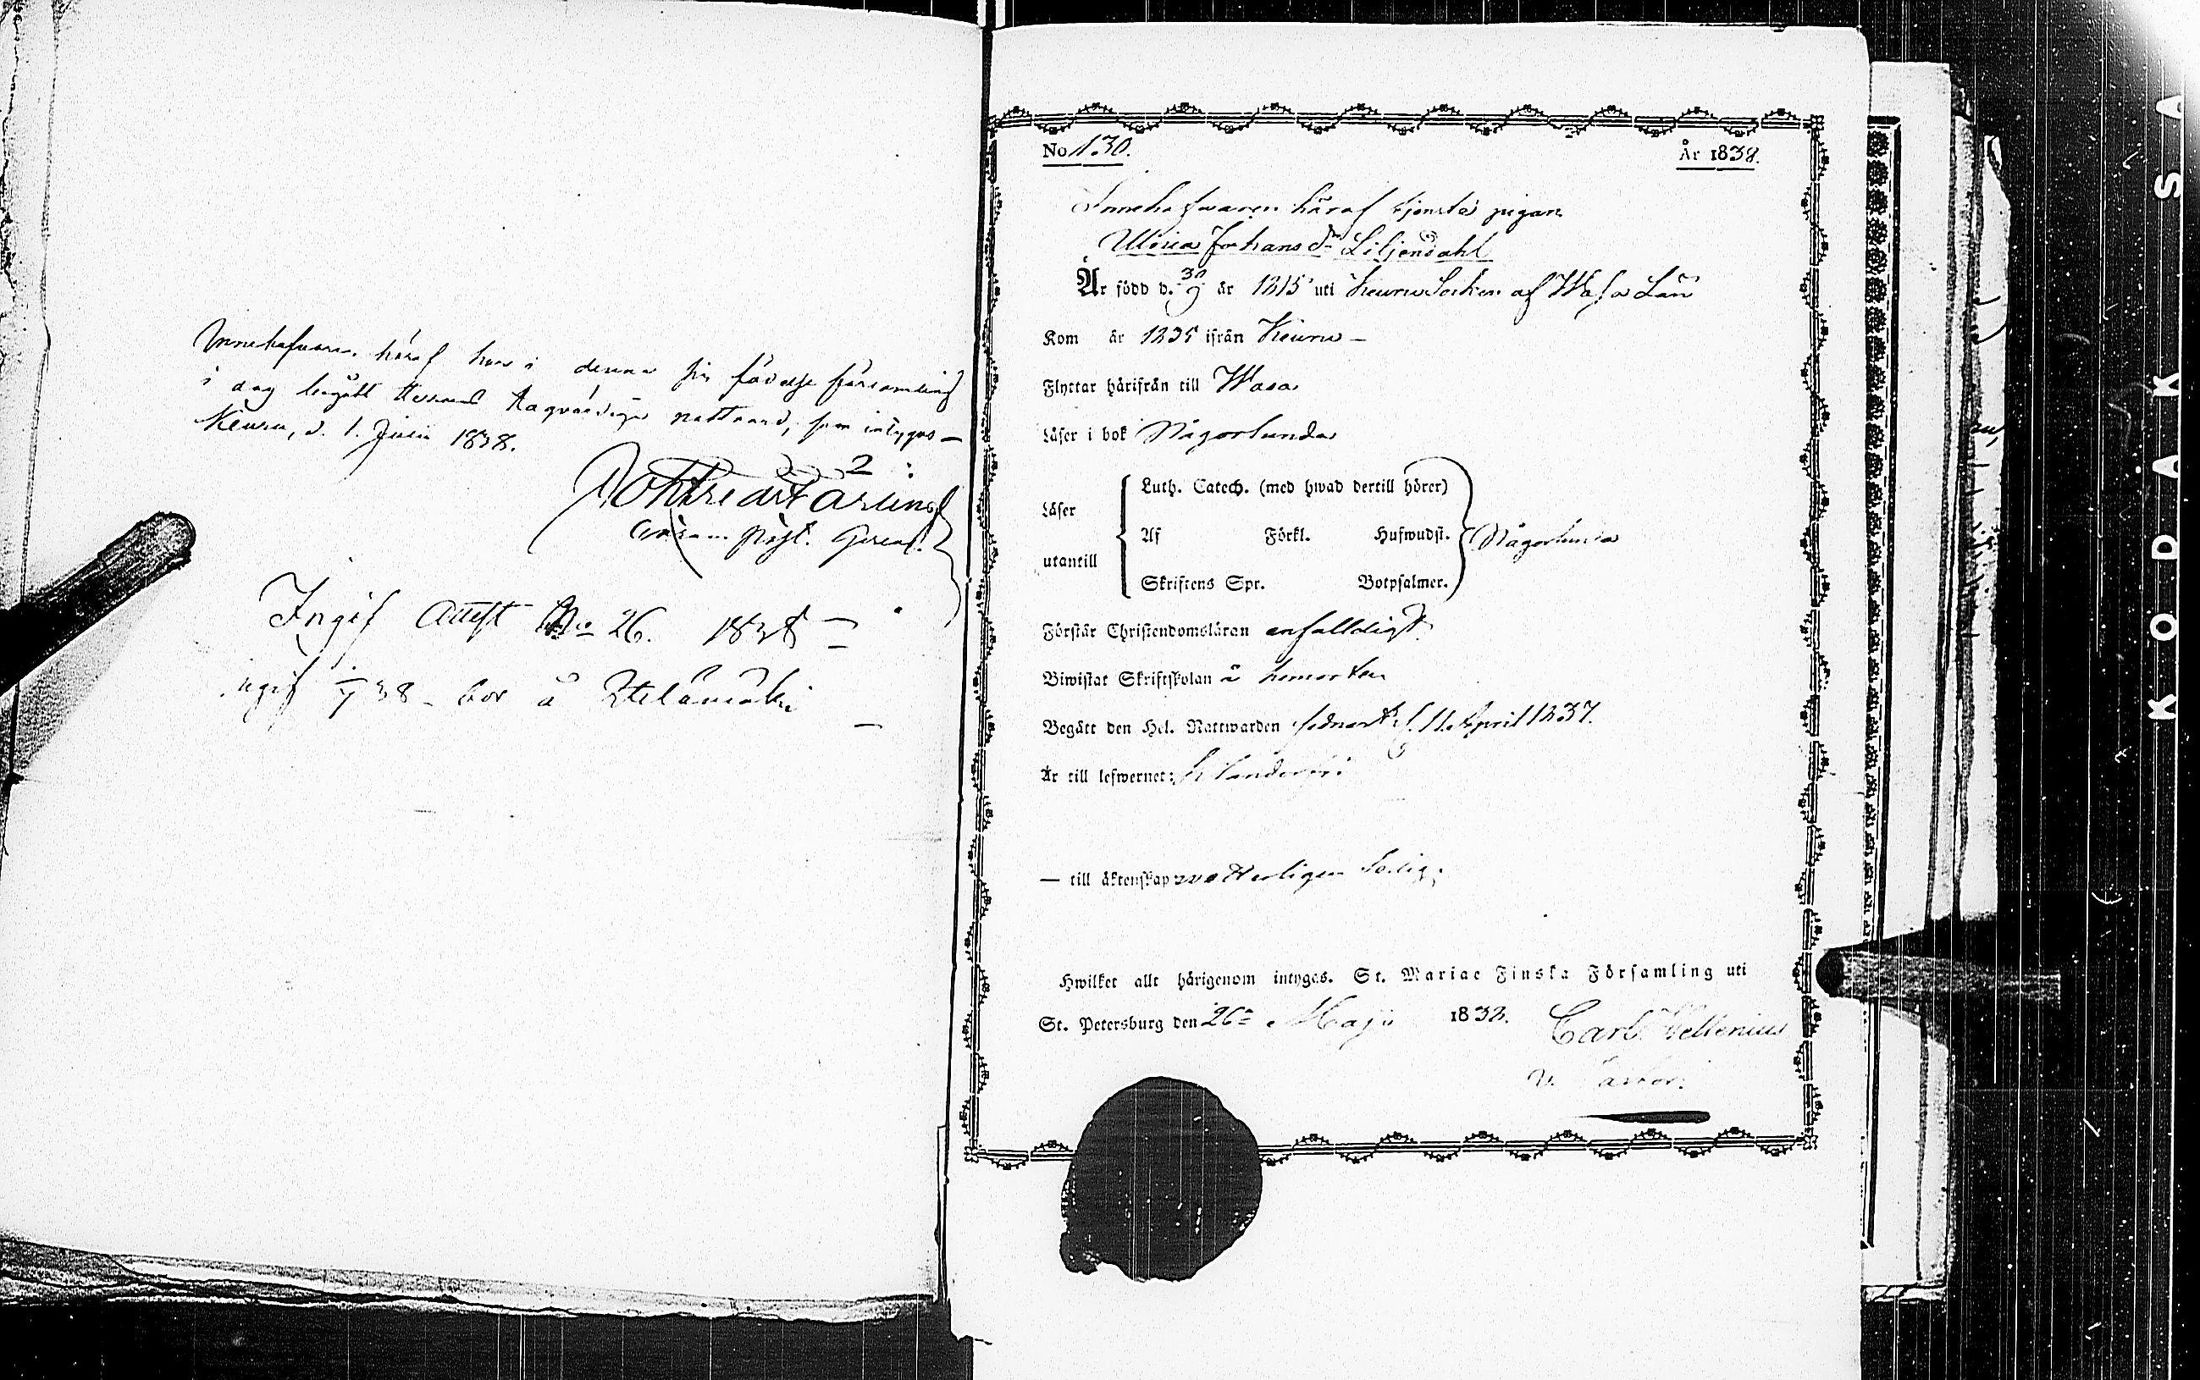 Innehafvaren häraf har i denna sin födelse församling
i dag begått Herrans högvärdiga nattvard, som intygas —
Keuru, d. 1. Julii 1838.
Ingif Attest No 26. 1838 —
ingif 38 — bor å
No 130.
År 1838.
Innehafwaren häraf tjenste pigan
Ulrica Johans dr Liljendahl
Är född d. 30/9 år 1815 uti Keuru Socken af Wasa Län
Kom år 1835 ifrån Keuru —
Flyttar härifrån till Wasa
Läser i bok Någorlunda
Läser
utantill
Luth. Catech. (med hwad dertill hörer)
Af Förkl. Hufwudst.
Skriftens Spr. Botpsalmer.
Någorlunda
Förstår Christendomsläran enfalldigt.
Biwistat Skriftskolan å hemorten
Begått den Hel. Nattwarden sednast d. 11 April 1837.
Är till lefwernet: klanderfri
— till äktenskap wetterligen ledig;
Hwilket allt härigenom intyges. St. Mariae Finska Församling uti
St. Petersburg den 26 Maji 1838. Carl
KODAK SA